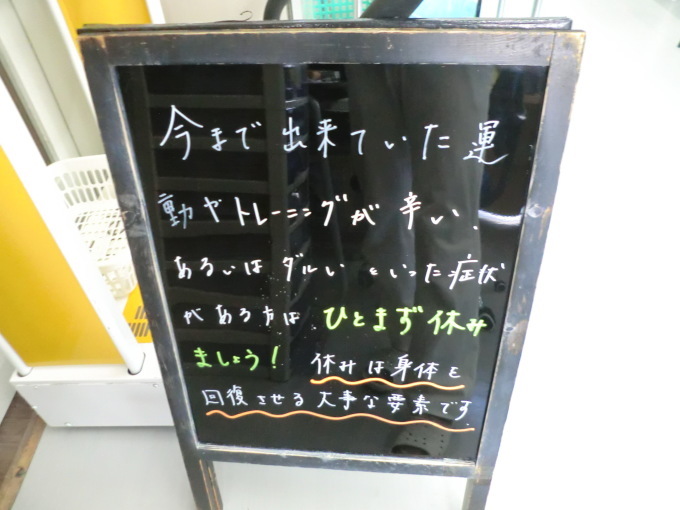 今まで出来ていた運
動やトレーニングが辛い、
あるいはダルいといった症状
がある方はひとまず休み
ましょう！休みは身体を
回復させる大事な要素です。